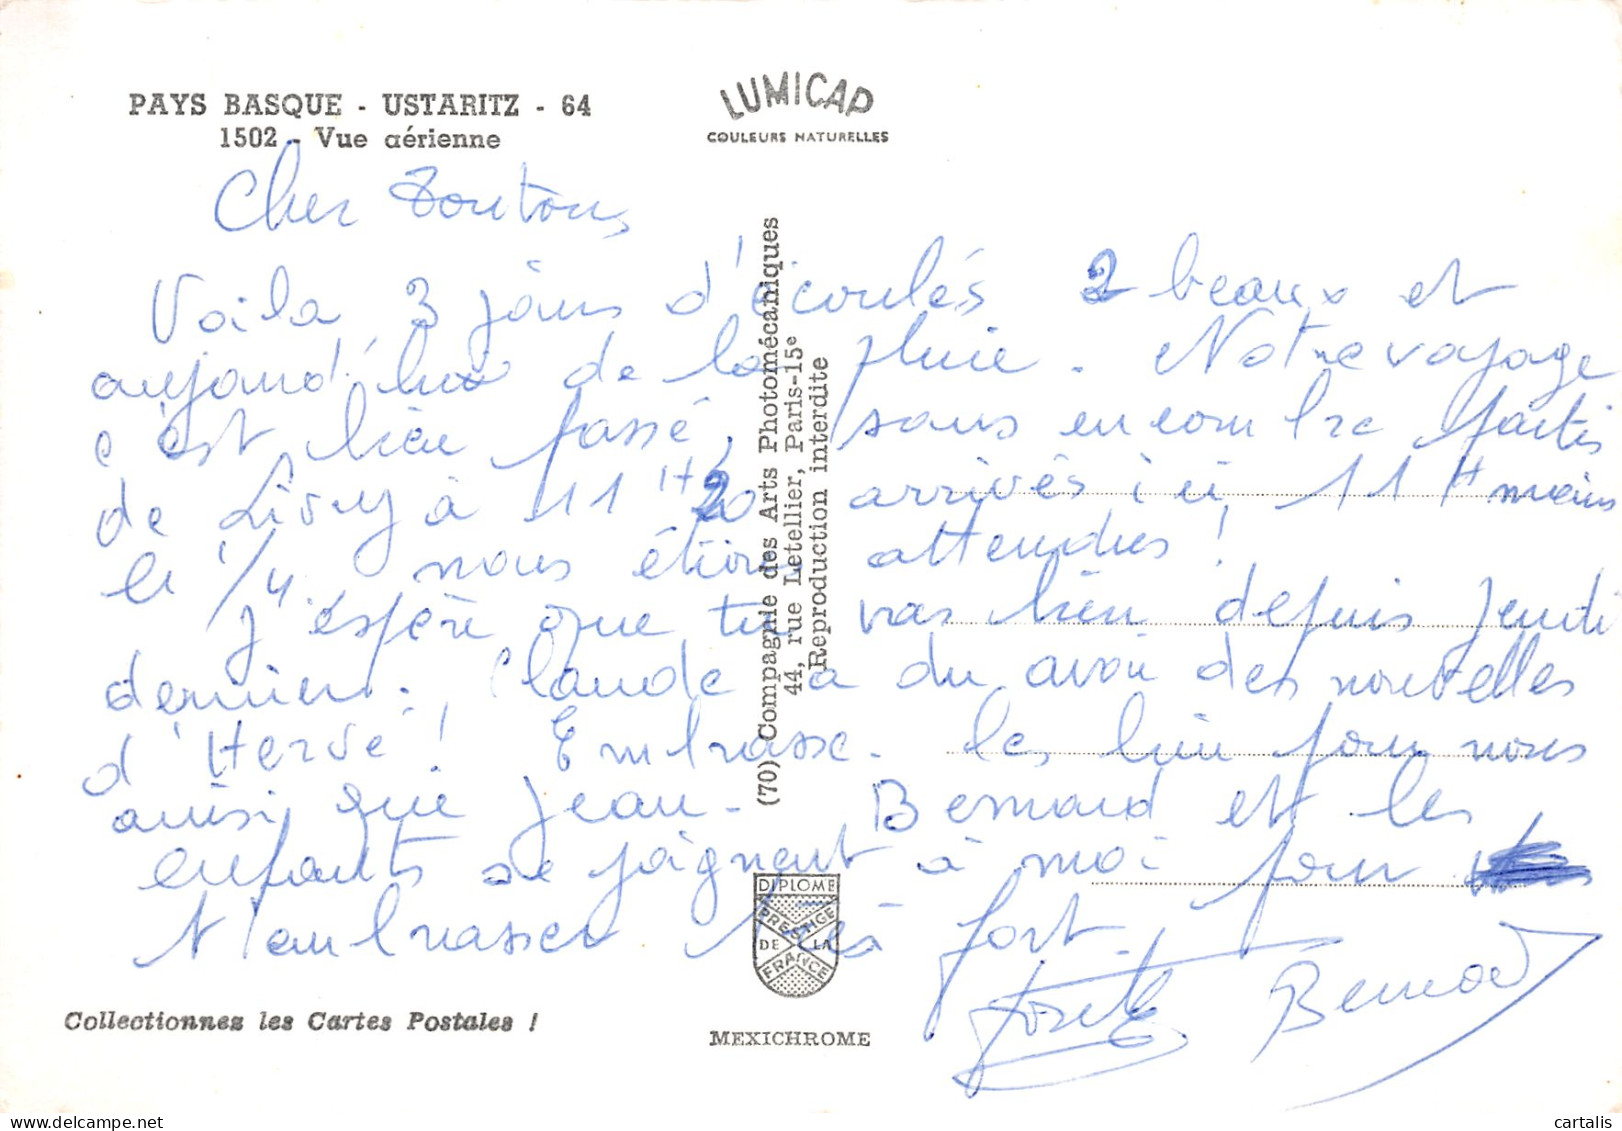 PAYS BASQUE - USTARITZ - 64
1502 - Vue aérienne
LUMICAP
COULEURS NATURELLES
Cher Tontons
Voila 3 jours d'écoulés 2 beaux et
aujourd'hui de la pluie. Notre voyage
c'est bien passé, sans encombre partis
de Livry à 11H20 arrivés ici 11H moins
le 1/4. nous étions attendus!
J'espère que tu vas bien depuis jeudi
dernier. Claude a du avoir des nouvelles
d'Hervé! Embrasse-les bien pour nous
ainsi que Jean. Bernard et les
enfants se joignent à moi pour
t'embrasser très fort.
Bernard
(70) Compagnie des Arts Photomécaniques
44, rue Letellier, Paris-15e
Reproduction interdite
DIPLOME
PRESTIGE
DE LA
FRANCE
Collectionnez les Cartes Postales !
MEXICHROME
cartalis
www.delcampe.net